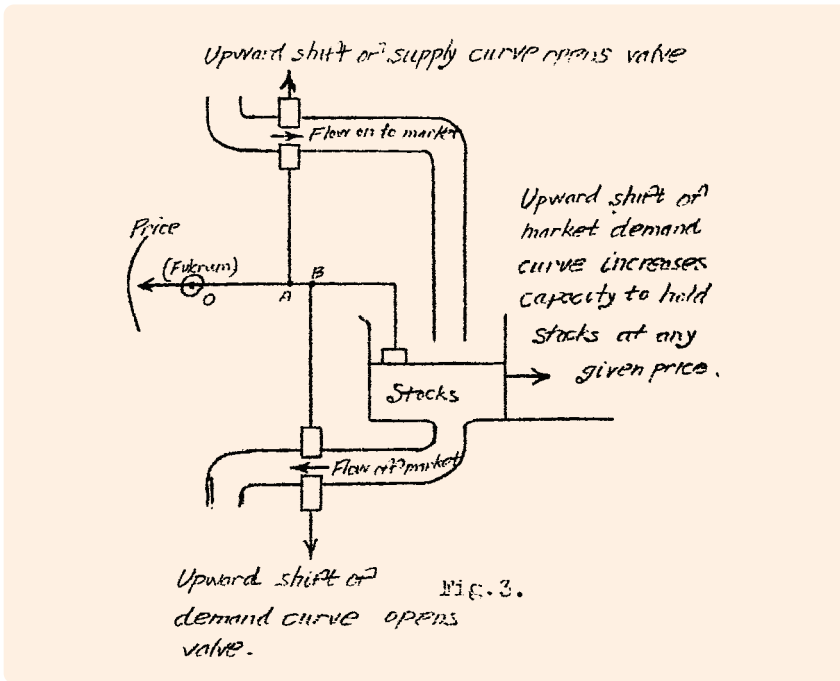 Upward shift of supply curve opens valve
Flow on to market
Price
(Fulcrum)
O
A
B
Upward shift of
market demand
curve increases
capacity to hold
stocks at any
given price.
Stocks
Flow off market
Upward shift of
demand curve opens
valve.
Fig.3.